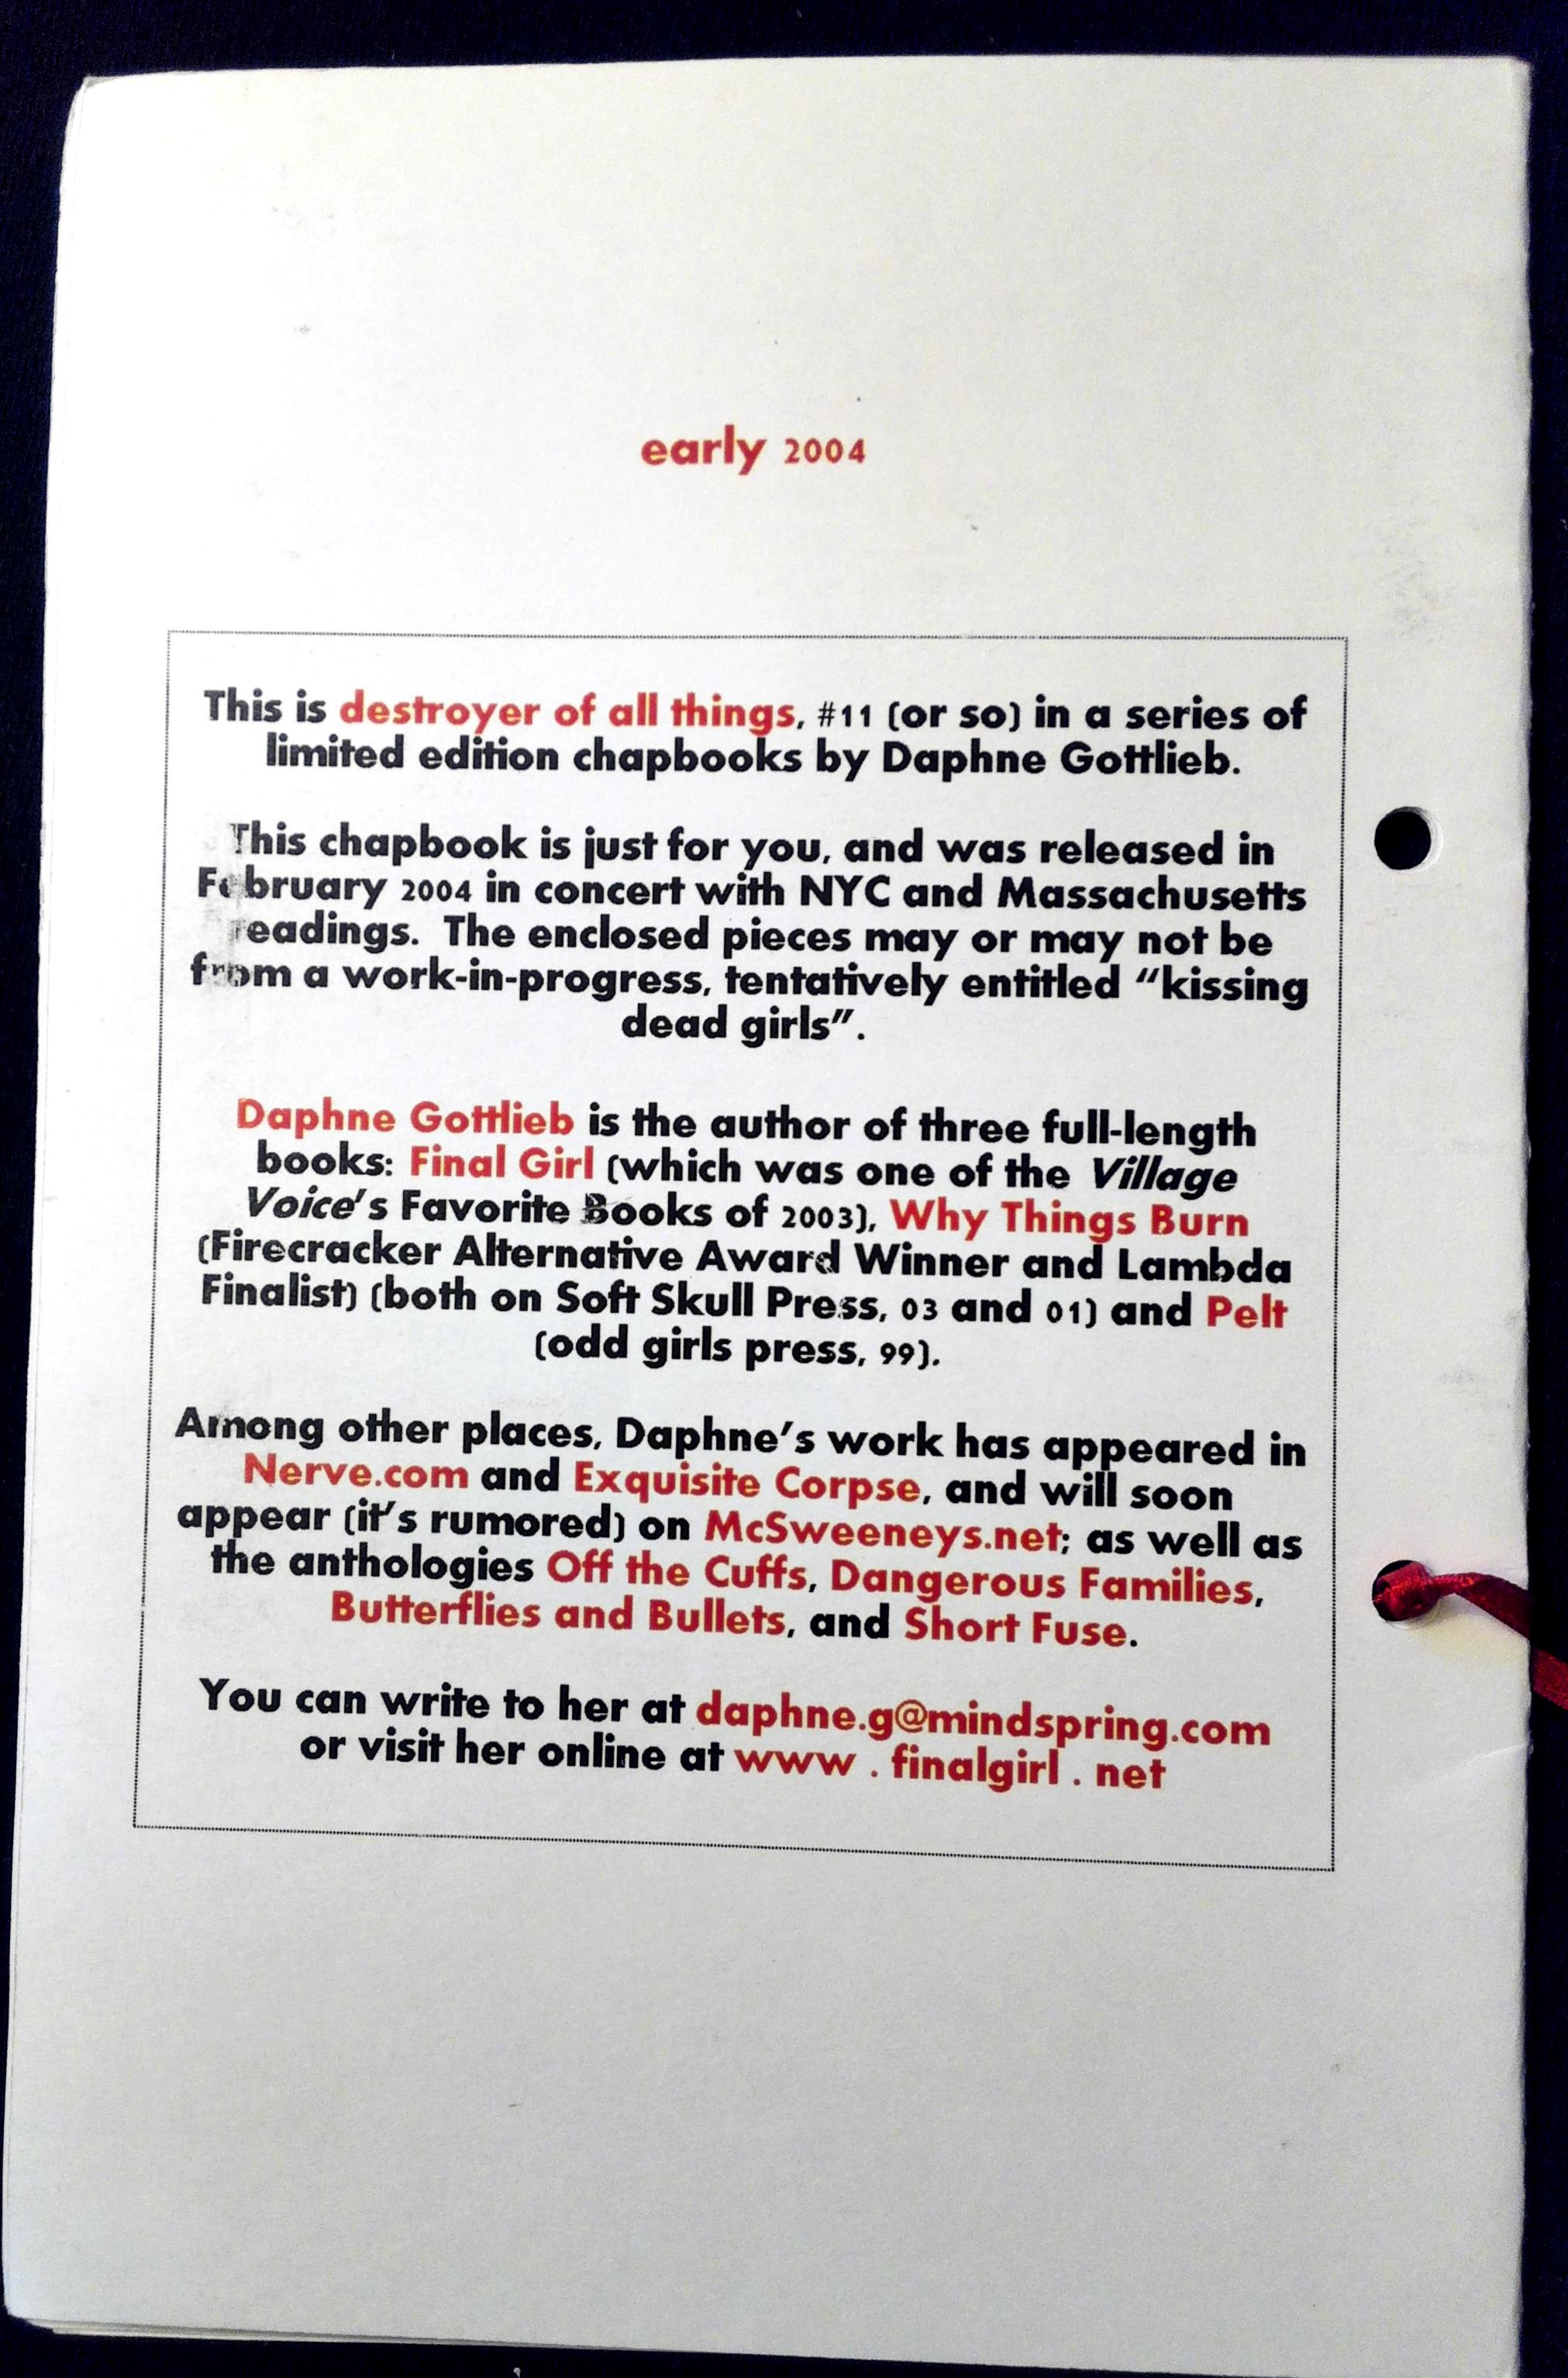 early 2004
This is destroyer of all things, #11 (or so) in a series of
limited edition chapbooks by Daphne Gottlieb.
This chapbook is just for you, and was released in
February 2004 in concert with NYC and Massachusetts
readings. The enclosed pieces may or may not be
from a work-in-progress, tentatively entitled "kissing
dead girls".
Daphne Gottlieb is the author of three full-length
books: Final Girl (which was one of the Village
Voice's Favorite Books of 2003), Why Things Burn
(Firecracker Alternative Award Winner and Lambda
Finalist) (both on Soft Skull Press, 03 and 01) and Pelt
(odd girls press, 99).
Among other places, Daphne's work has appeared in
Nerve.com and Exquisite Corpse, and will soon
appear (it's rumored) on McSweeneys.net; as well as
the anthologies Off the Cuffs, Dangerous Families,
Butterflies and Bullets, and Short Fuse.
You can write to her at daphne.g@mindspring.com
or visit her online at www . finalgirl . net